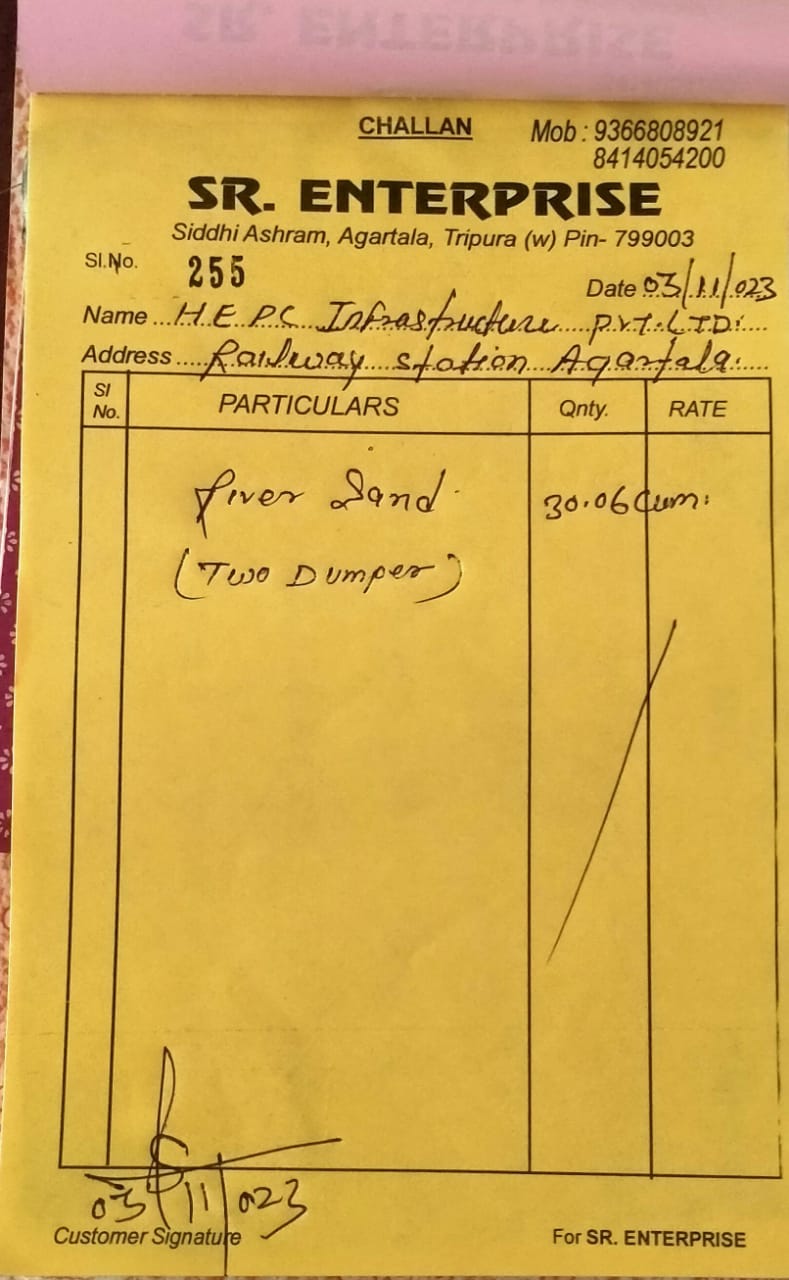 CHALLAN Mob : 9366808921
8414054200
SR. ENTERPRISE
Siddhi Ashram, Agartala, Tripura (w) Pin- 799003
Sl.No. 255
Date 03/11/023
Name H.E.P.C Infrastructure PVT.LTD.
Address Railway station Agartala.
Sl No. PARTICULARS Qnty. RATE
River Sand 30.06 Cum.
(Two Dumper)
03/11/023
Customer Signature For SR. ENTERPRISE